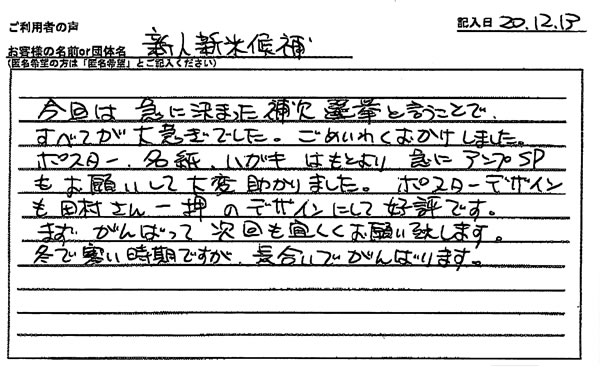 ご利用者の声
記入日 20.12.13
お客様の名前or団体名 新人新米候補
(匿名希望の方は「匿名希望」とご記入ください)
今回は 急に決まった補欠選挙と言うことで、
すべてが大急ぎでした。ごめいわくおかけしました。
ポスター、名紙、ハガキ はもとより 急に アンプSP
もお願いして大変助かりました。ポスターデザイン
も田村さん一押のデザインにして好評です。
まず がんばって 次回も宜しくお願い致します。
冬で寒い時期ですが、
がんばります。